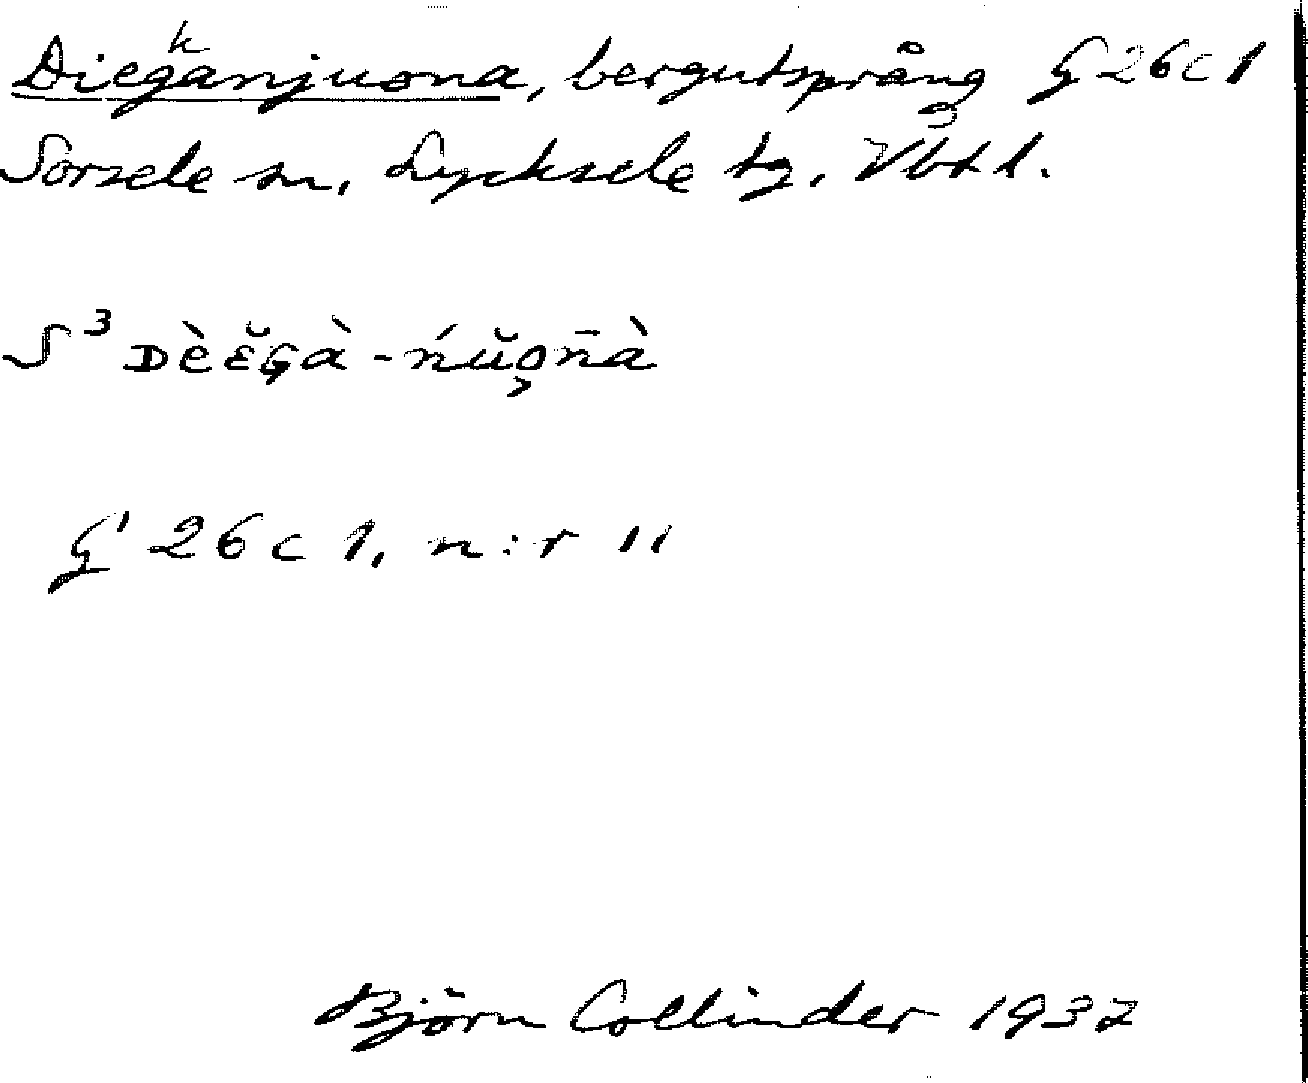 Dieganjuona, bergutsprång G 26 c 1
Sorsele sn, Lycksele tg, Vbtl.
S³ ᴅèɛ̆ɢà-ńŭo̧n̄à
G 26 c 1, n:r 11
Björn Collinder 1937